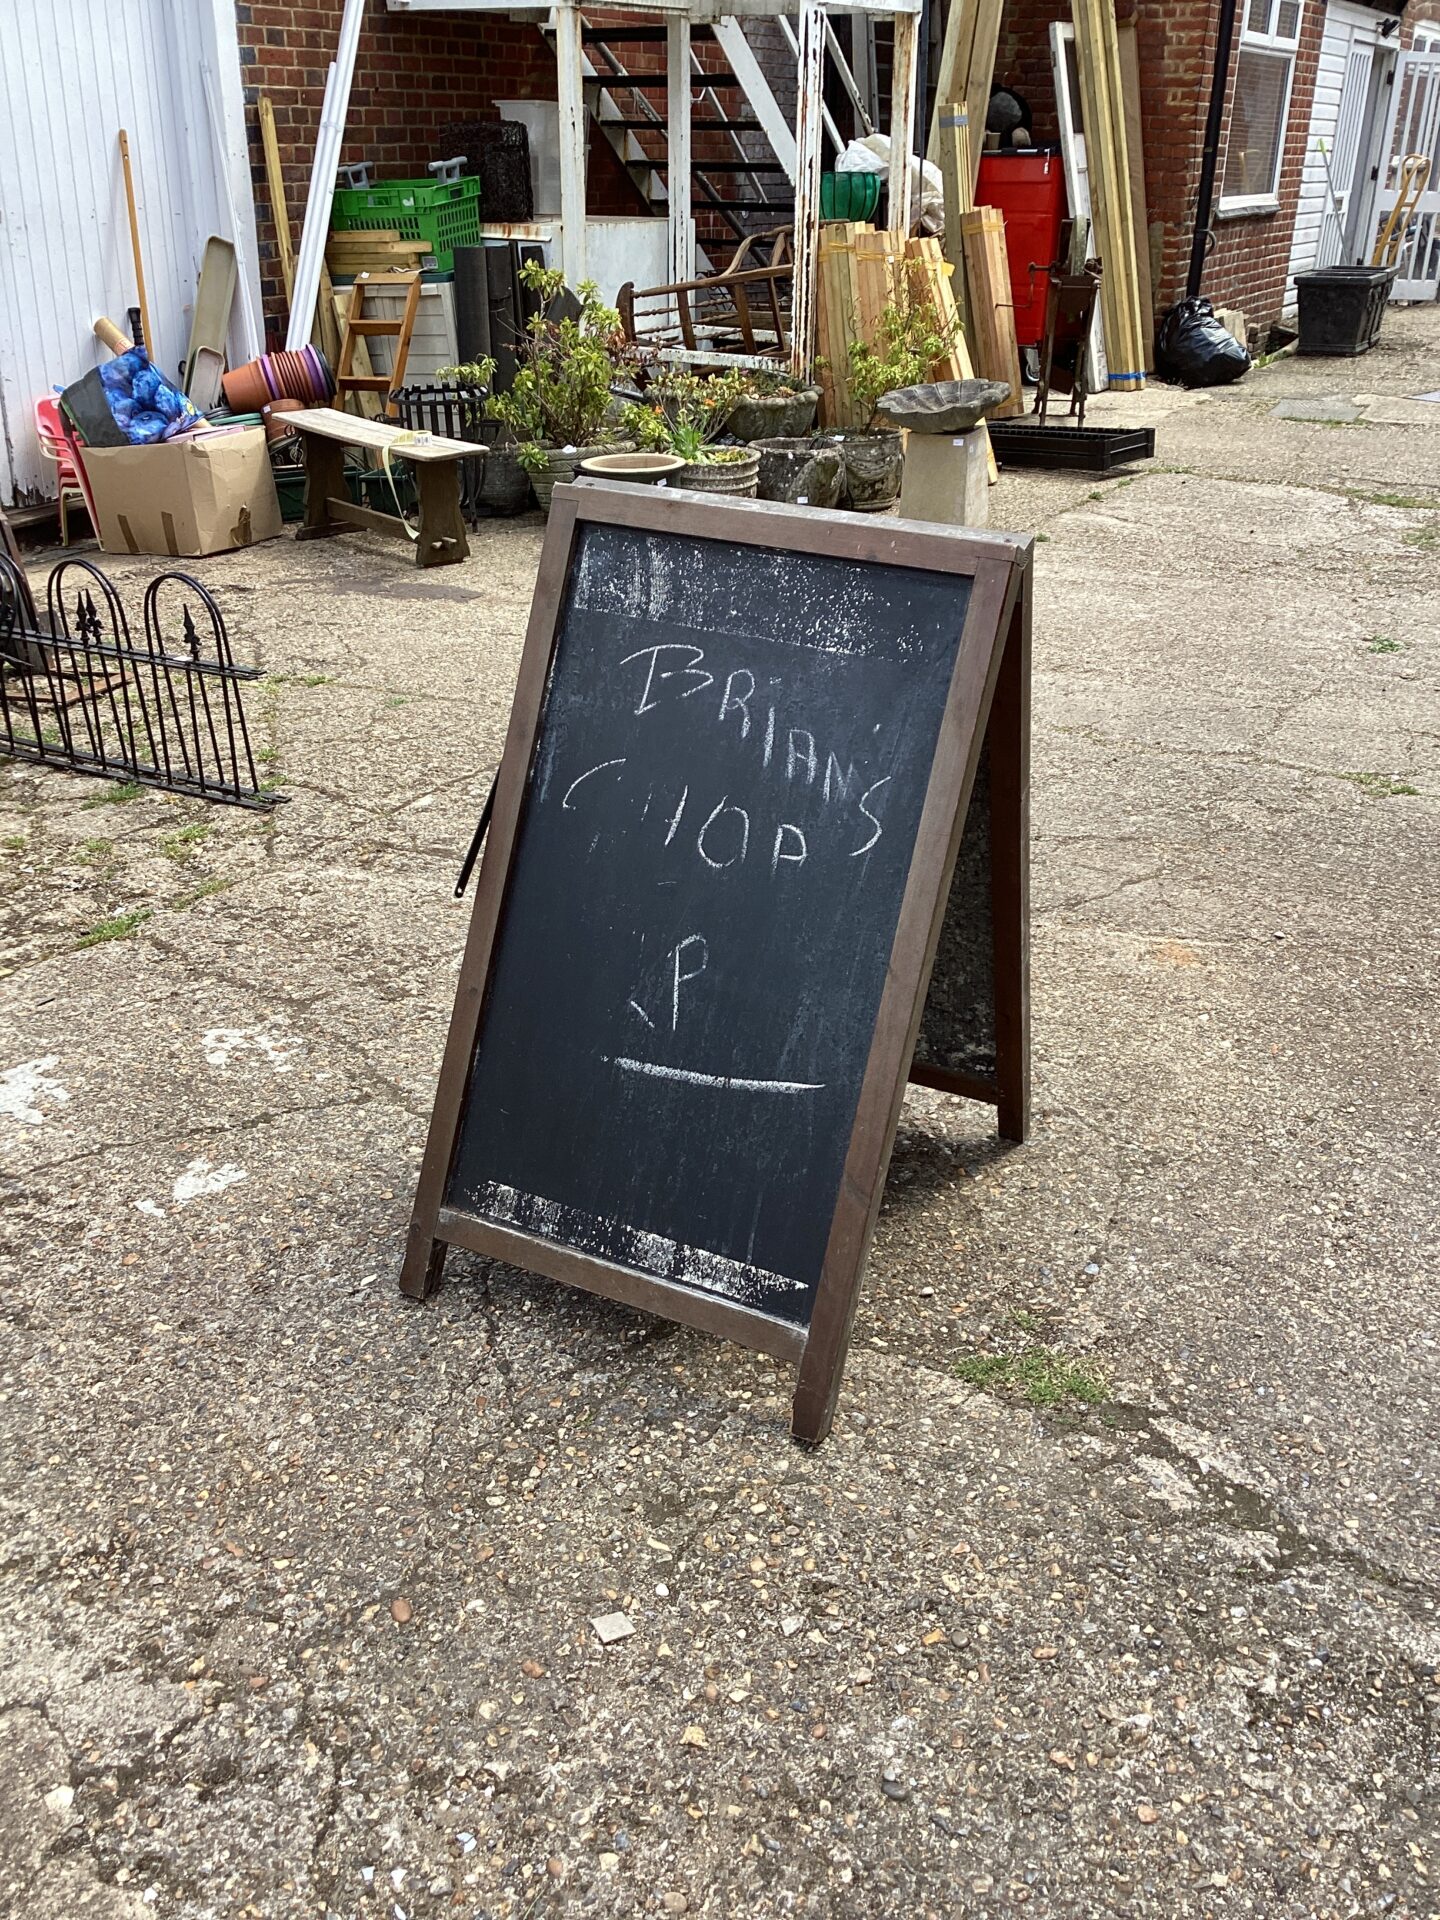 BRIAN'S
CHOPS